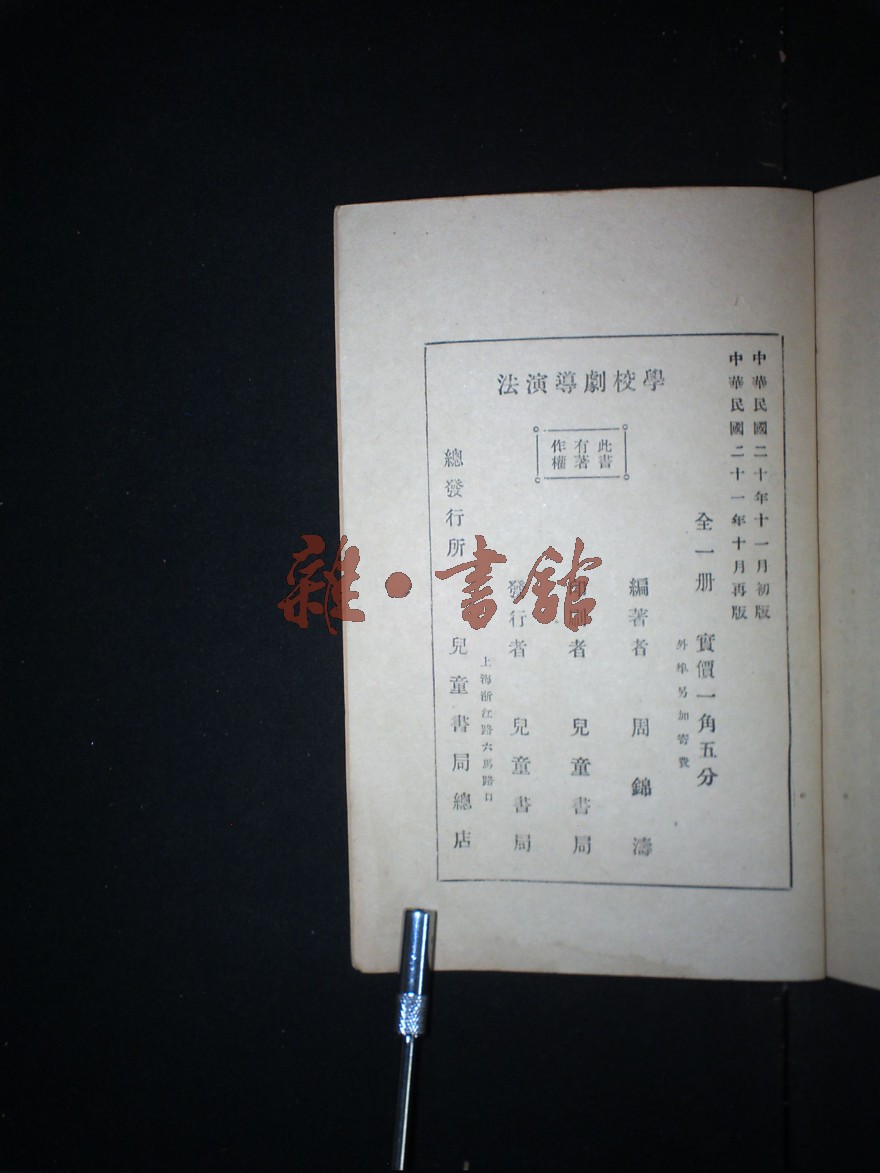 中華民國二十年十一月初版
中華民國二十一年十月再版
學校劇導演法
全一册 實價一角五分
外埠另加寄費
此書
有著
作權
編著者 周錦濤
印刷者 兒童書局
發行者 兒童書局
上海浙江路六馬路口
總發行所 兒童書局總店
雜·書館